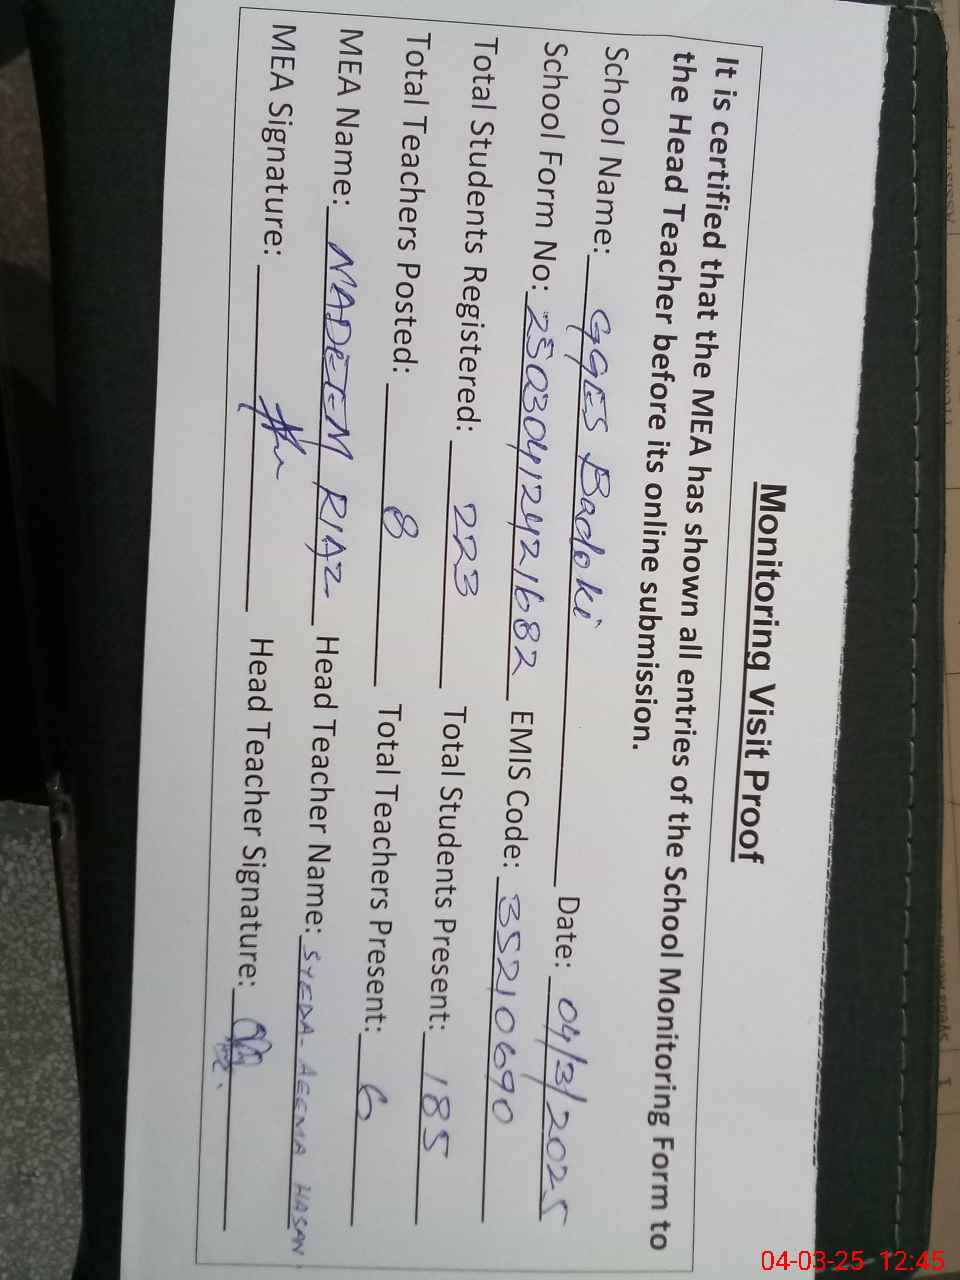 Monitoring Visit Proof
It is certified that the MEA has shown all entries of the School Monitoring Form to
the Head Teacher before its online submission.
School Name: GGES Badoki Date: 04/3/2025
School Form No: 250304124421682 EMIS Code: 35210690
Total Students Registered: 223 Total Students Present: 185
Total Teachers Posted: 8 Total Teachers Present: 6
MEA Name: NADEEM RIAZ Head Teacher Name: SYEDA AEEMA HASAN
MEA Signature: Head Teacher Signature:
04-03-25 12:45